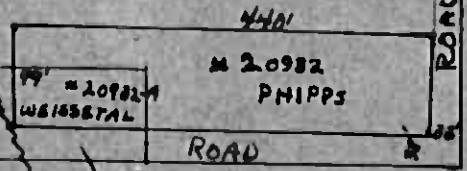 440'
ROAD
# 20982
PHIPPS
99'
# 20982-A
WEISS ETAL
ROAD